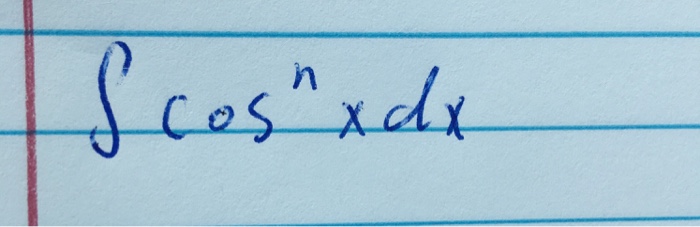 ∫ cosⁿ x dx